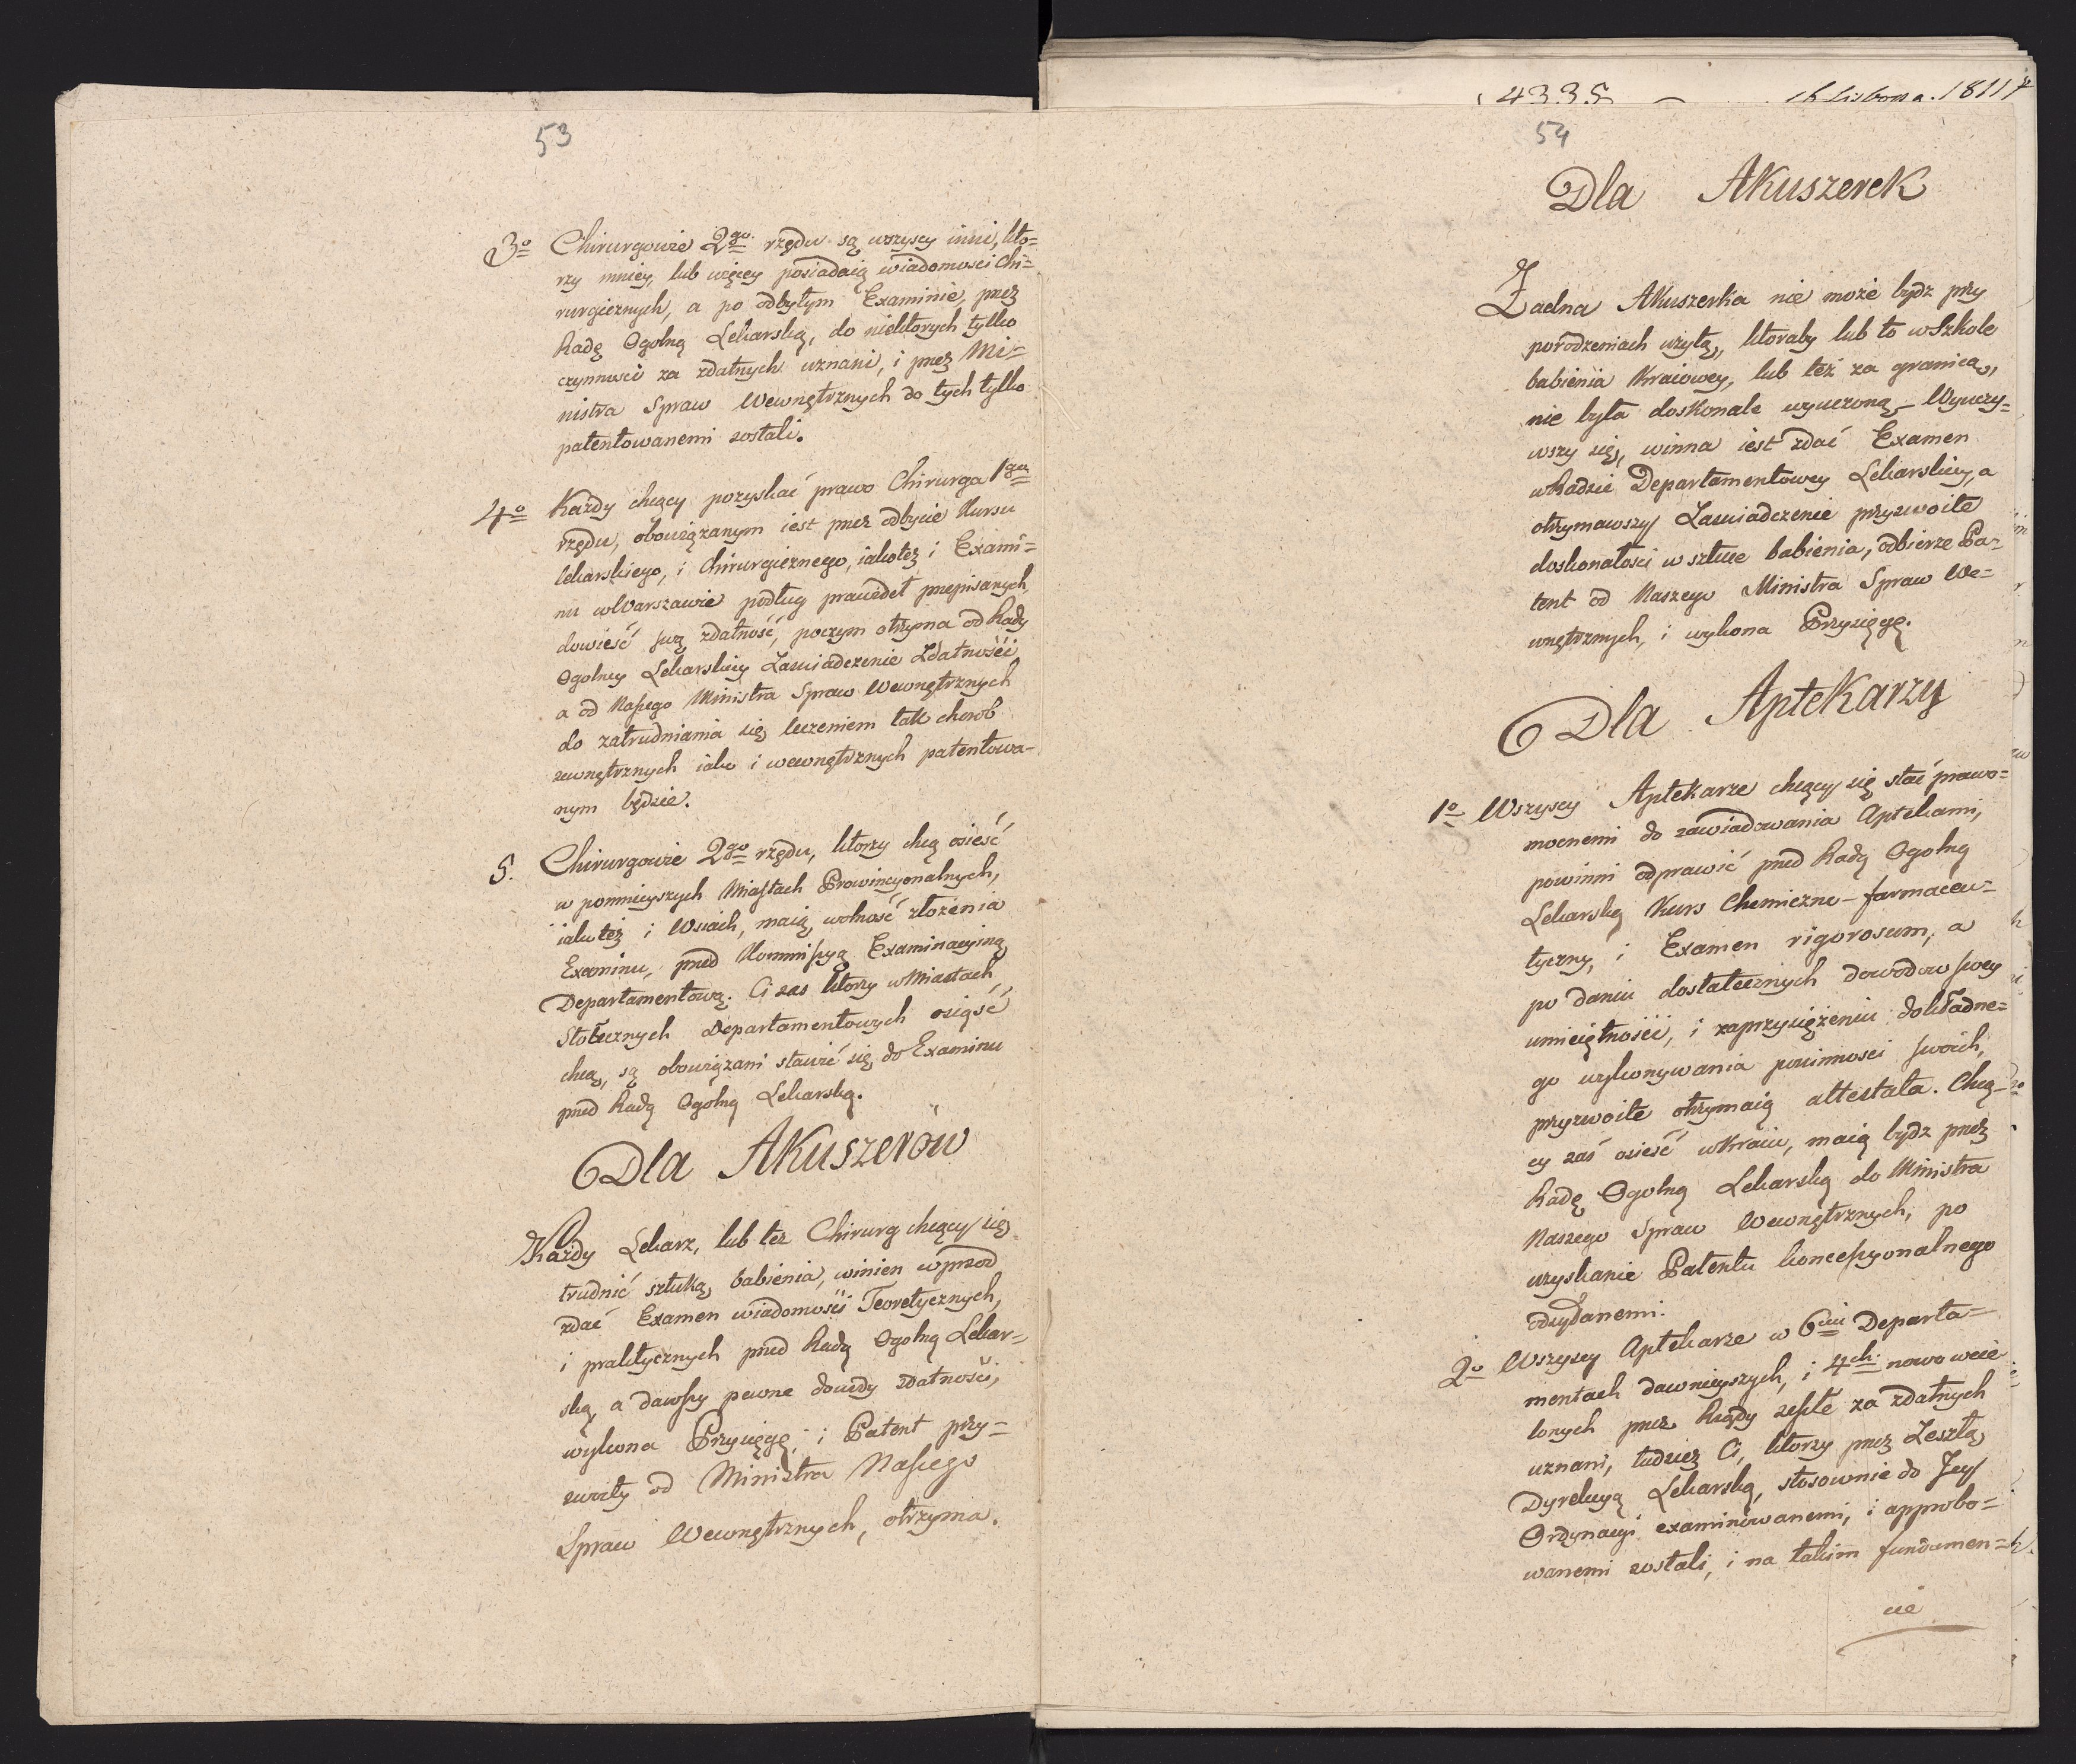 53
3º Chirurgowie 2go rzędu są wszyscy inni, któ=
rzy mniey, lub więcey posiadaią wiadomosci Chi=
rurgicznych, a po odbytym Examinie, przez
Radę Ogolną Lekarską, do niektorych tylko
czynnosci za zdatnych uznani, i przez Mi=
nistra Spraw Wewnętrznych do tych tylko
patentowanemi zostali.
4º Każdy chcący pozyskać prawo Chirurga 1go
rzędu, obowiązanym iest przez odbycie Kursu
lekarskiego, i Chirurgicznego, iakotez i Exami=
nu w Warszawie podług prawideł przepisanych,
dowieść swą zdatność, poczym otrzyma od Rady
Ogolney Lekarskiey Zaswiadczenie Zdatności
a od Naszego Ministra Spraw Wewnętrznych
do zatrudniania się leczeniem tak chorob
zewnętrznych iako i wewnętrznych patentowa-
nym będzie.
5. Chirurgowie 2go rzędu, ktorzy chcą osieść
w pomnieyszych Miastach Prowincyonalnych,
iako też i Wsiach, maią wolność złożenia
Examinu, przed Kommissyą Examinacyiną
Departamentową. Ci zas ktorzy w Miastach
Stołecznych Departamentowych osiąść
chcą, są obowiązani stawić się do Examinu
przed Radą Ogolną Lekarską.
Dla Akuszerów
Każdy Lekarz, lub tez Chirurg chcący się
trudnić sztuką babienia, winien wprzod
zdać Examen wiadomości Teoretycznych,
i praktycznych przed Radą Ogolną Lekar=
ską a dawszy pewne dowody zdatności,
wykona Przysięgę, i Patent przy=
zwoity od Ministra Naszego
Spraw Wewnętrznych, otrzyma.
4335 1811
54
Dla Akuszerek
Żadna Akuszerka nie może bydz przy
porodzeniach użytą, ktoraby lub to w Szkole
babienia Kraiowey, lub też za granicą,
nie była doskonale wyuczoną – Wyuczy=
wszy się, winna iest zdać Examen
w Radzie Departamentowey Lekarskiey, a
otrzymawszy Zaswiadczenie przyzwoite
doskonałosci w sztuce babienia, odbierze Pa=
tent od Naszego Ministra Spraw We=
wnętrznych, i wykona Przysięgę.
Dla Aptekarzy
1º Wszyscy Aptekarze chcący się stać prawo=
mocnemi do zawiadowania Aptekami,
powinni odprawić przed Radą Ogolną
Lekarską Kurs Chemiczno – farmaceu=
tyczny, i Examen rigorosum, a
po daniu dostatecznych dowodow swey
umieiętności, i zaprzysiężeniu dokładne=
go wykonywania powinnosci swoich,
przyzwoite otrzymaią attestata. Chcą=
cy zaś osieść w Kraiu, maią bydz przez
Radę Ogolną Lekarską do Ministra
Naszego Spraw Wewnętrznych, po
uzyskanie Patentu koncessyonalnego
odsyłanemi.
2º Wszyscy Aptekarze w 6ciu Departa=
mentach dawnieyszych, i 4ch nowo wcie
lonych przez Rządy zeszłe za zdatnych
uznani, tudziez Ci, ktorzy przez Zeszłą
Dyrekcyą Lekarską, stosownie do Jey
Ordynacyi examinowanemi, i approbo=
wanemi zostali, i na takim fundamen=
cie